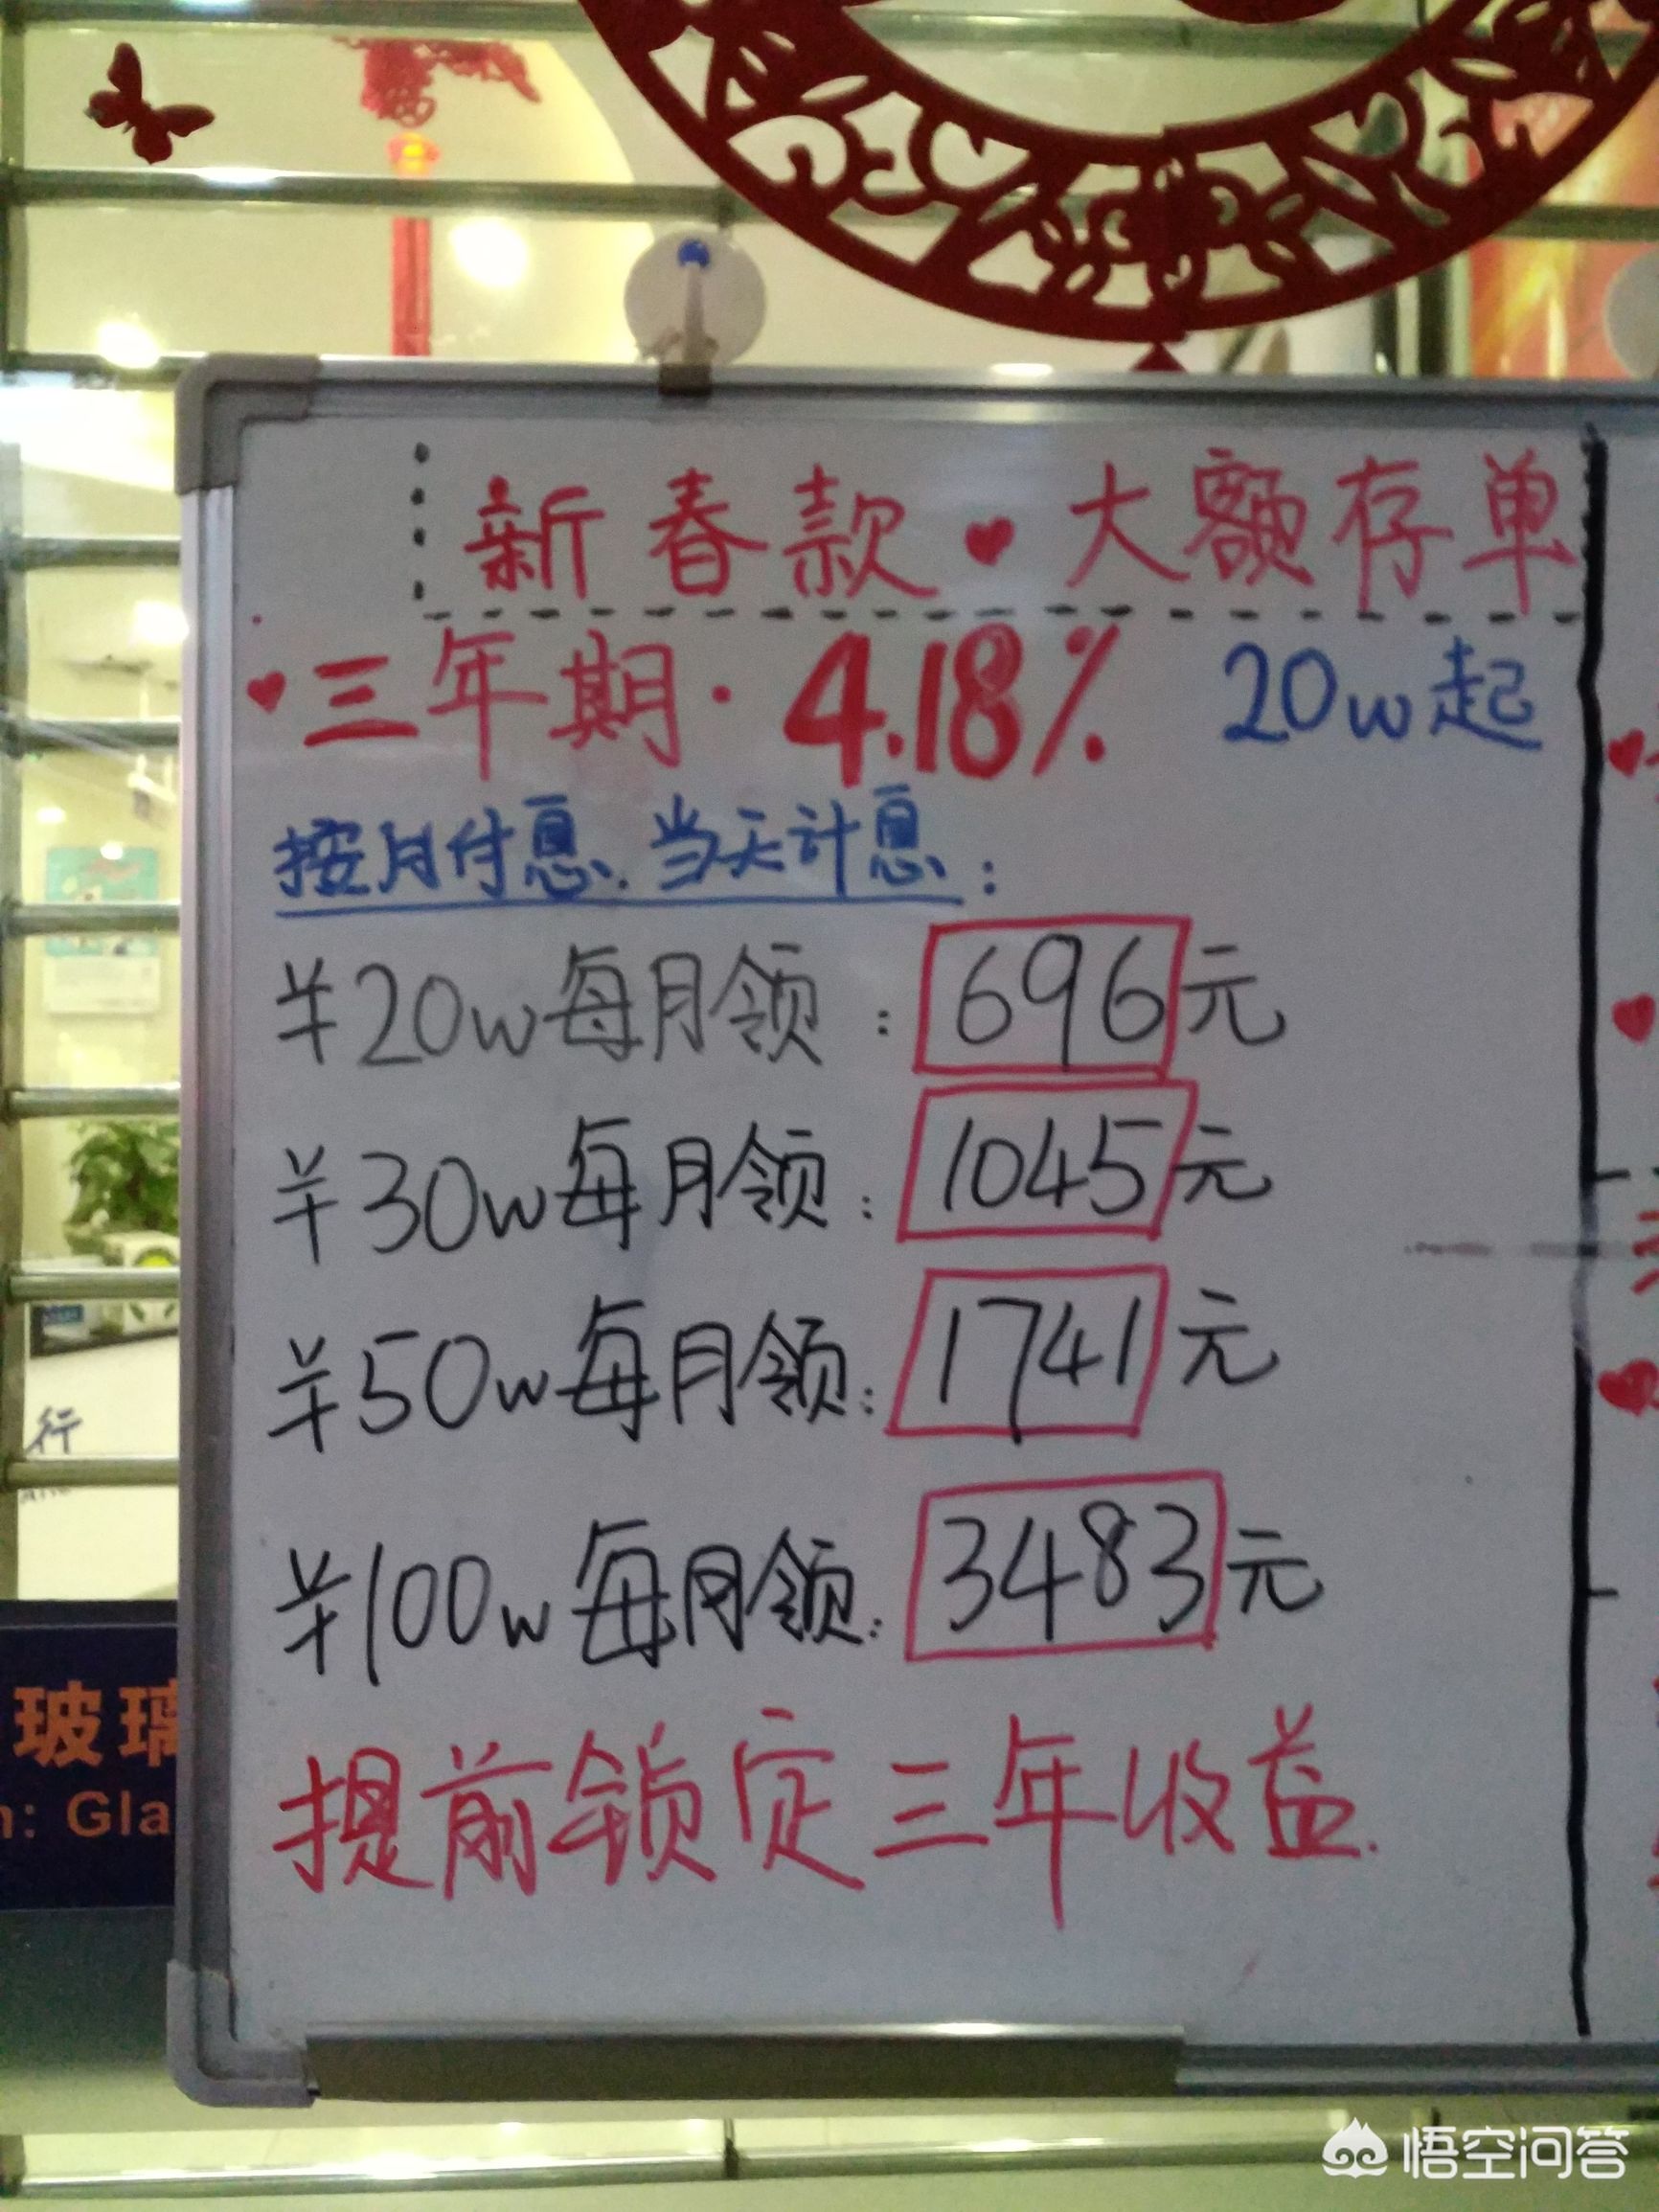 新春款♥大额存单
♥三年期·4.18% 20w起
按月付息、当天计息：
¥20w每月领：696元
¥30w每月领：1045元
¥50w每月领：1741元
¥100w每月领：3483元
提前锁定三年收益.
行
玻璃
: Gla
悟空问答